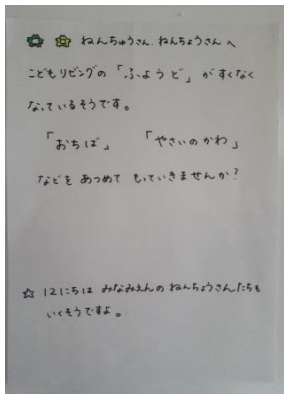 ねんちゅうさん、ねんちょうさん へ
こどもリビングの 「ふようど」 が すくなく
なっているそうです。
「おちば」 「やさいのかわ」
などを あつめて もっていきませんか?
☆ 12にちは みなみえんの ねんちょうさんたちも
いくそうですよ。